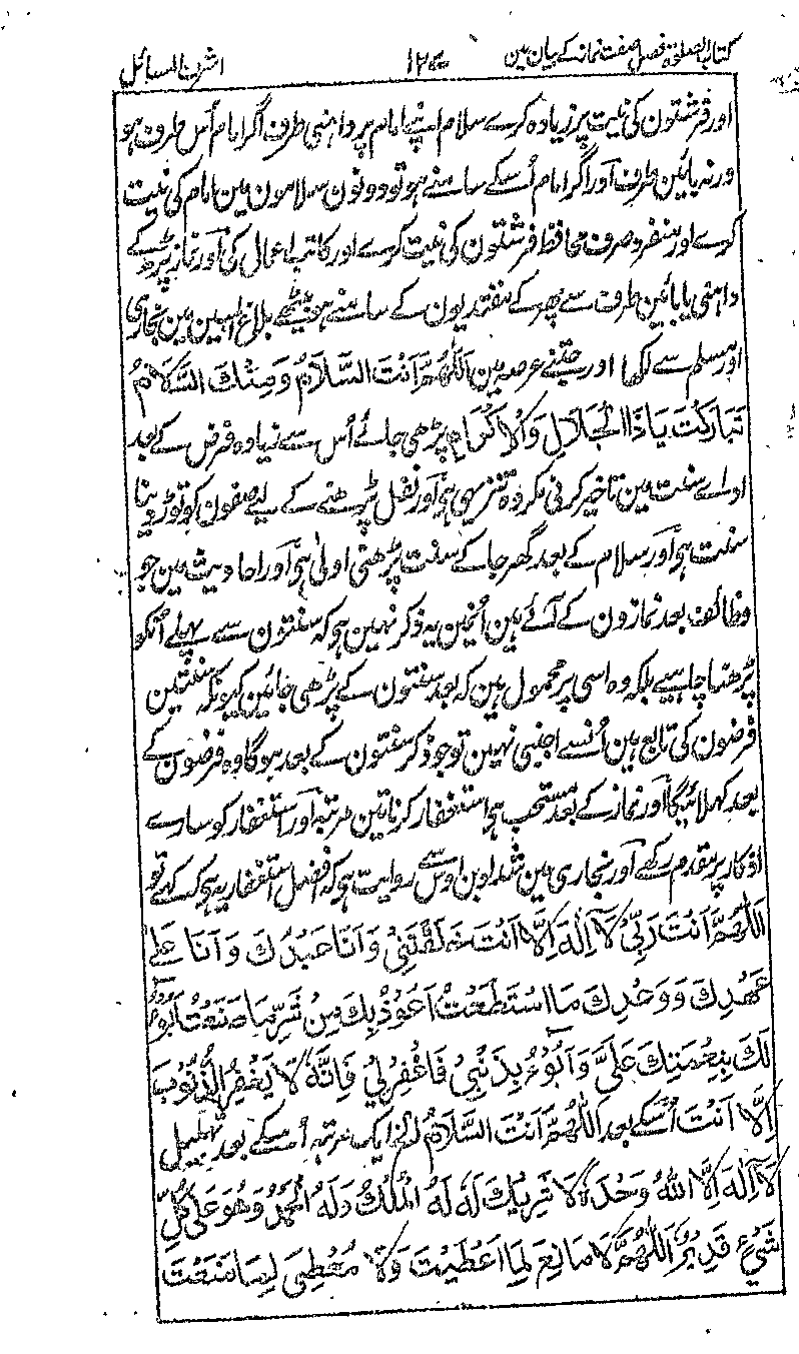 کتاب الصلوۃ فصل صفت نماز کے بیان مین ۱۲۷ اشرف المسائل
اور فرشتون کی نیت پر زیادہ کرے سلام اپنے امام پر داہنی طرف اگر امام اُس طرف ہو
ورنہ بائین طرف اور اگر امام اُسکے سامنے ہو تو دونون سلامون مین امام کی نیت
کرے اور منفرد صرف محافظ فرشتون کی نیت کرے اور کاتب اعمال کی اور نماز پڑھ کے
داہنی یا بائین طرف سے پھر کے مقتدیون کے سامنے ہو بیٹھے بلاغ المبین مین بخاری
اور مسلم سے لکھا اور جتنے عرصہ مین اَللّٰهُمَّ اَنْتَ السَّلَامُ وَمِنْكَ السَّلَامُ
تَبَارَكْتَ يَا ذَا الْجَلَالِ وَالْاِكْرَامِ پڑھی جائے اُس سے زیادہ فرض کے بعد
اداے سنت مین تاخیر کرنی مکروہ تنزیہی ہو اور نفل پڑھنے کے لیے صفون کو توڑ دینا
سنت ہو اور سلام کے بعد گھر جا کے سنت پڑھنی اولیٰ ہو اور احادیث مین جو
وظائف بعد نمازون کے آئے ہین اُنمین یہ ذکر نہین ہو کہ سنتون سے پہلے اُنکو
پڑھنا چاہیے بلکہ وہ اسی پر محمول ہین کہ بعد سنتون کے پڑھی جائین کیونکہ سنتین
فرضون کی تابع ہین اُنسے اجنبی نہین تو جو ذکر سنتون کے بعد ہوگا وہ فرضون کے
بعد کہلائیگا اور نماز کے بعد مستحب ہو استغفار کرنا تین مرتبہ اور استغفار کو سارے
اذکار پر مقدم رکھے اور بخاری مین شداد بن اوس سے روایت ہو کہ افضل استغفار یہ ہو کہ کہے تو
اَللّٰهُمَّ اَنْتَ رَبِّيْ لَا اِلٰهَ اِلَّا اَنْتَ خَلَقْتَنِيْ وَاَنَا عَبْدُكَ وَاَنَا عَلٰى
عَهْدِكَ وَوَعْدِكَ مَا اسْتَطَعْتُ اَعُوْذُ بِكَ مِنْ شَرِّ مَا صَنَعْتُ اَبُوْءُ
لَكَ بِنِعْمَتِكَ عَلَيَّ وَاَبُوْءُ بِذَنْبِيْ فَاغْفِرْ لِيْ فَاِنَّهٗ لَا يَغْفِرُ الذُّنُوْبَ
اِلَّا اَنْتَ اُسکے بعد اَللّٰهُمَّ اَنْتَ السَّلَامُ الخ ایک مرتبہ اُسکے بعد تہلیل
لَا اِلٰهَ اِلَّا اللّٰهُ وَحْدَهٗ لَا شَرِيْكَ لَهٗ لَهُ الْمُلْكُ وَلَهُ الْحَمْدُ وَهُوَ عَلٰى كُلِّ
شَيْءٍ قَدِيْرٌ اَللّٰهُمَّ لَا مَانِعَ لِمَا اَعْطَيْتَ وَلَا مُعْطِيَ لِمَا مَنَعْتَ